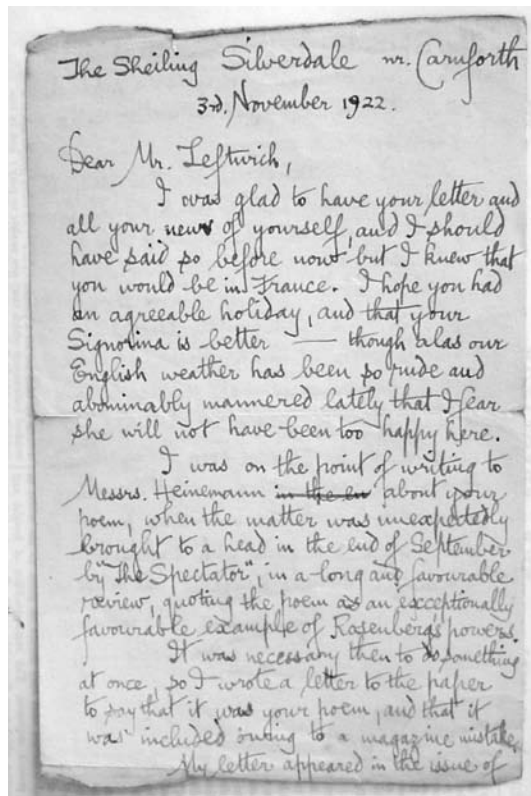 The Sheiling Silverdale nr. Carnforth
3rd. November 1922.
Dear Mr. Leftwich,
I was glad to have your letter and
all your news of yourself, and I should
have said so before now but I knew that
you would be in France. I hope you had
an agreeable holiday, and that your
Signorina is better — though alas our
English weather has been so rude and
abominably mannered lately that I fear
she will not have been too happy here.
I was on the point of writing to
Messrs. Heinemann in the en about your
poem, when the matter was unexpectedly
brought to a head in the end of September
by "The Spectator", in a long and favourable
review, quoting the poem as an exceptionally
favourable example of Rosenberg's powers.
It was necessary then to do something
at once, so I wrote a letter to the paper
to say that it was your poem, and that it
was included owing to a magazine mistake.
My letter appeared in the issue of